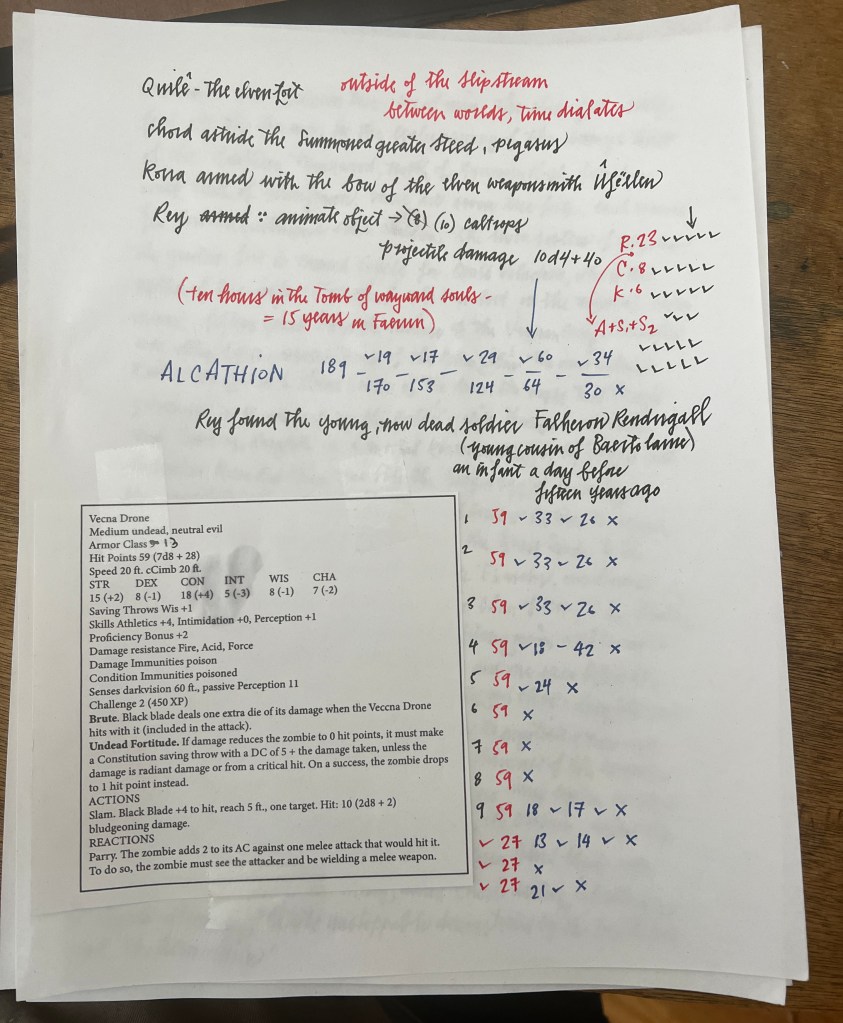 Quilê - The elven fort
outside of the slipstream
between worlds, time dialates
chord astride the summoned greater steed, pegasus
Rossa armed with the bow of the elven weaponsmith
Rey armed :: animate object → (8) (10) caltrops
projectile damage 10d4+40
R. 23 ✓✓✓✓✓
C. 8 ✓✓✓✓✓
K. 6 ✓✓✓✓✓
A+S,+S2 ✓✓✓
✓✓✓✓✓
✓✓✓✓✓
(ten hours in the Tomb of wayward souls -
= 15 years in Faerun)
ALCATHION 189 - ✓19 - ✓17 - ✓29 - ✓60 - ✓34
170 153 124 64 30 x
Rey found the young, now dead soldier Falheron Rendrigall
(young cousin of Baertolaine)
an infant a day before
fifteen years ago
Vecna Drone
Medium undead, neutral evil
Armor Class 9 13
Hit Points 59 (7d8 + 28)
Speed 20 ft. cCimb 20 ft.
STR DEX CON INT WIS CHA
15 (+2) 8 (-1) 18 (+4) 5 (-3) 8 (-1) 7 (-2)
Saving Throws Wis +1
Skills Athletics +4, Intimidation +0, Perception +1
Proficiency Bonus +2
Damage resistance Fire, Acid, Force
Damage Immunities poison
Condition Immunities poisoned
Senses darkvision 60 ft., passive Perception 11
Challenge 2 (450 XP)
Brute. Black blade deals one extra die of its damage when the Veccna Drone
hits with it (included in the attack).
Undead Fortitude. If damage reduces the zombie to 0 hit points, it must make
a Constitution saving throw with a DC of 5 + the damage taken, unless the
damage is radiant damage or from a critical hit. On a success, the zombie drops
to 1 hit point instead.
ACTIONS
Slam. Black Blade +4 to hit, reach 5 ft., one target. Hit: 10 (2d8 + 2)
bludgeoning damage.
REACTIONS
Parry. The zombie adds 2 to its AC against one melee attack that would hit it.
To do so, the zombie must see the attacker and be wielding a melee weapon.
1 59 ✓ 33 ✓ 26 x
2 59 ✓ 33 ✓ 26 x
3 59 ✓ 33 ✓ 26 x
4 59 ✓ 18 - 42 x
5 59 ✓ 24 x
6 59 x
7 59 x
8 59 x
9 59 18 ✓ 17 ✓ x
✓ 27 13 ✓ 14 ✓ x
✓ 27 x
✓ 27 21 ✓ x